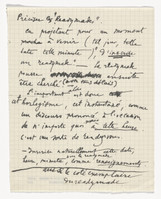 Préciser les "Readymades".
en projetant pour un moment
proche à venir (tel jour, telle
date telle minute), "d'inscrire
un readymade". — Le readymade
pourra ensuite
être cherché (avec tous délais)
L'important est donc
cet horlogisme, cet instantané, comme
un discours prononcé à l'occasion
de n'importe quoi mais à telle heure.
C'est une sorte de rendez-vous.
— Inscrire naturellement cette date,
heure, minute, sur le readymade
comme renseignements
aussi le côté exemplaire
du readymade.